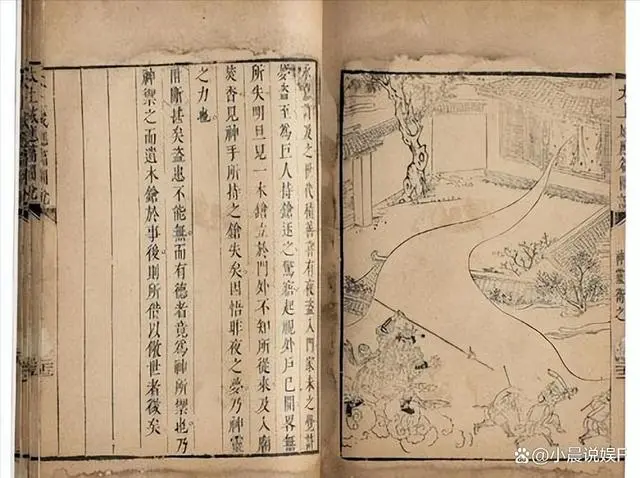 太上感應篇圖說
靈衛之
計及之世代積善嘗有夜盜入門家未之覺計
夢盜至為巨人持鎗逐之驚寤起視外戶已開畧無
所失明旦見一木鎗立於門外不知所從來及入廟
焚香見神手所持之鎗失矣因悟昨夜之夢乃神靈
之力也
斷甚矣盜患不能無而有德者竟為神所禦也乃
神禦之而遺木鎗於事後則所借以儆世者矣
太上感應篇圖說
@小晨说娱